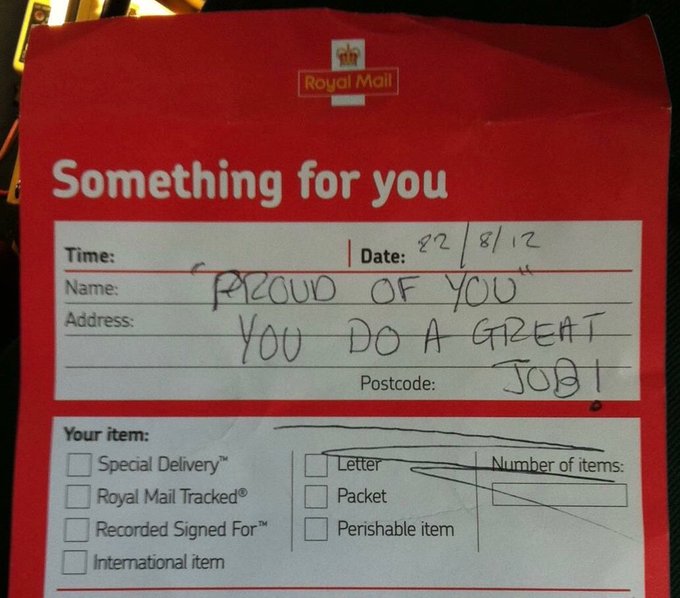 Royal Mail
Something for you
Time: Date: 22/8/12
Name: "PROUD OF YOU"
Address: YOU DO A GREAT
Postcode: JOB!
Your item:
Special Delivery™ Letter Number of items:
Royal Mail Tracked® Packet
Recorded Signed For™ Perishable item
International item